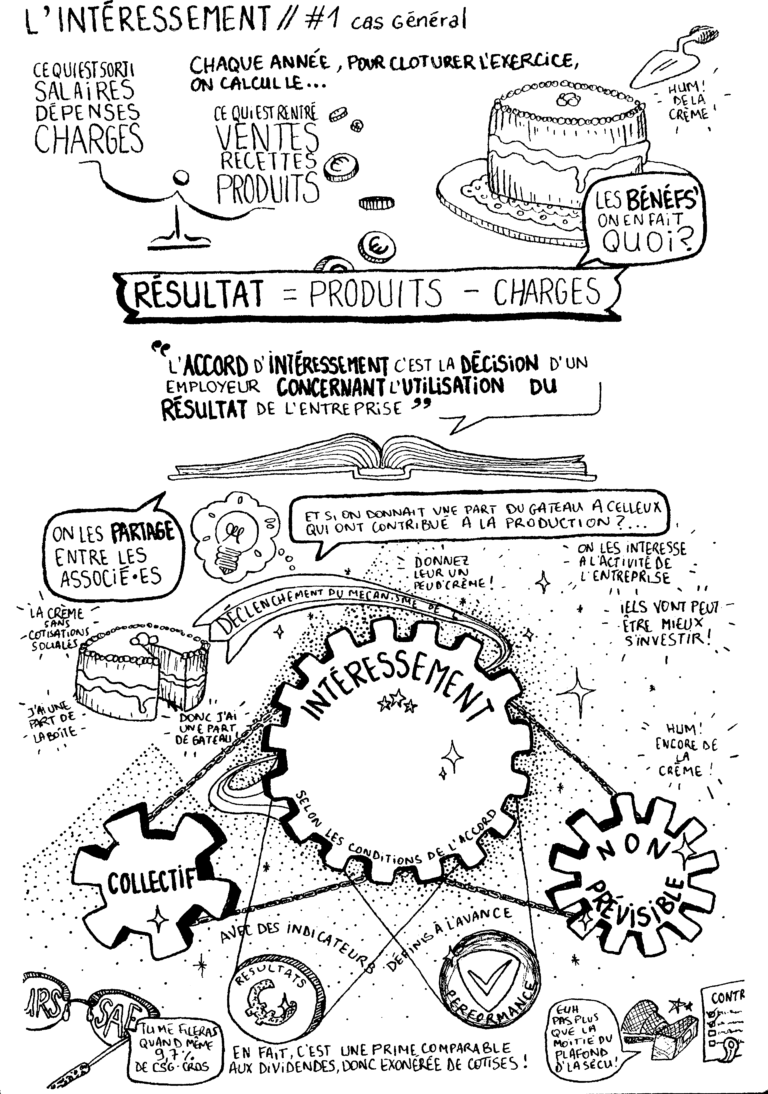 L'INTÉRESSEMENT // #1 cas Général
CE QUI EST SORTI
SALAIRES
DÉPENSES
CHARGES
CHAQUE ANNÉE, POUR CLOTURER L'EXERCICE,
ON CALCULLE...
CE QUI EST RENTRÉ
VENTES
RECETTES
PRODUITS
HUM!
DE LA
CRÈME!
LES BÉNÉFS'
ON EN FAIT
QUOI?
RÉSULTAT = PRODUITS - CHARGES
"L'ACCORD D'INTÉRESSEMENT C'EST LA DÉCISION D'UN
EMPLOYEUR CONCERNANT L'UTILISATION DU
RÉSULTAT DE L'ENTREPRISE"
ON LES PARTAGE
ENTRE LES
ASSOCIÉ·ES
ET SI ON DONNAIT UNE PART DU GATEAU A CELLEUX
QUI ONT CONTRIBUÉ A LA PRODUCTION ?...
DONNEZ
LEUR UN
PEU D'CRÈME!
ON LES INTERESSE
A L'ACTIVITÉ DE
L'ENTREPRISE
IELS VONT PEUT
ÊTRE MIEUX
S'INVESTIR!
LA CRÈME
SANS
COTISATIONS
SOCIALES
DÉCLENCHEMENT DU MÉCANISME DE
J'AI UNE
PART DE
LA BOÎTE
DONC J'AI
UNE PART
DE GATEAU!
INTÉRESSEMENT
SELON LES CONDITIONS DE L'ACCORD
HUM!
ENCORE DE
LA
CRÈME!
COLLECTIF
NON
PRÉVISIBLE
AVEC DES INDICATEURS
DÉFINIS À L'AVANCE
RESULTATS
PERFORMANCE
URS
SAF
TU ME FILERAS
QUAND MÊME
9,7%
DE CSG-CRDS
EN FAIT, C'EST UNE PRIME COMPARABLE
AUX DIVIDENDES, DONC EXONÉRÉE DE COTISES!
EUH
PAS PLUS
QUE LA
MOITIÉ DU
PLAFOND
D'LA SÉCU!
CONTR